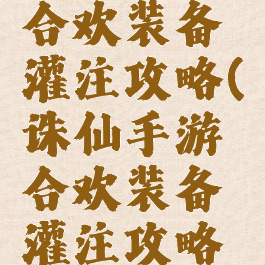 合欢装备
灌注攻略(
诛仙手游
合欢装备
灌注攻略